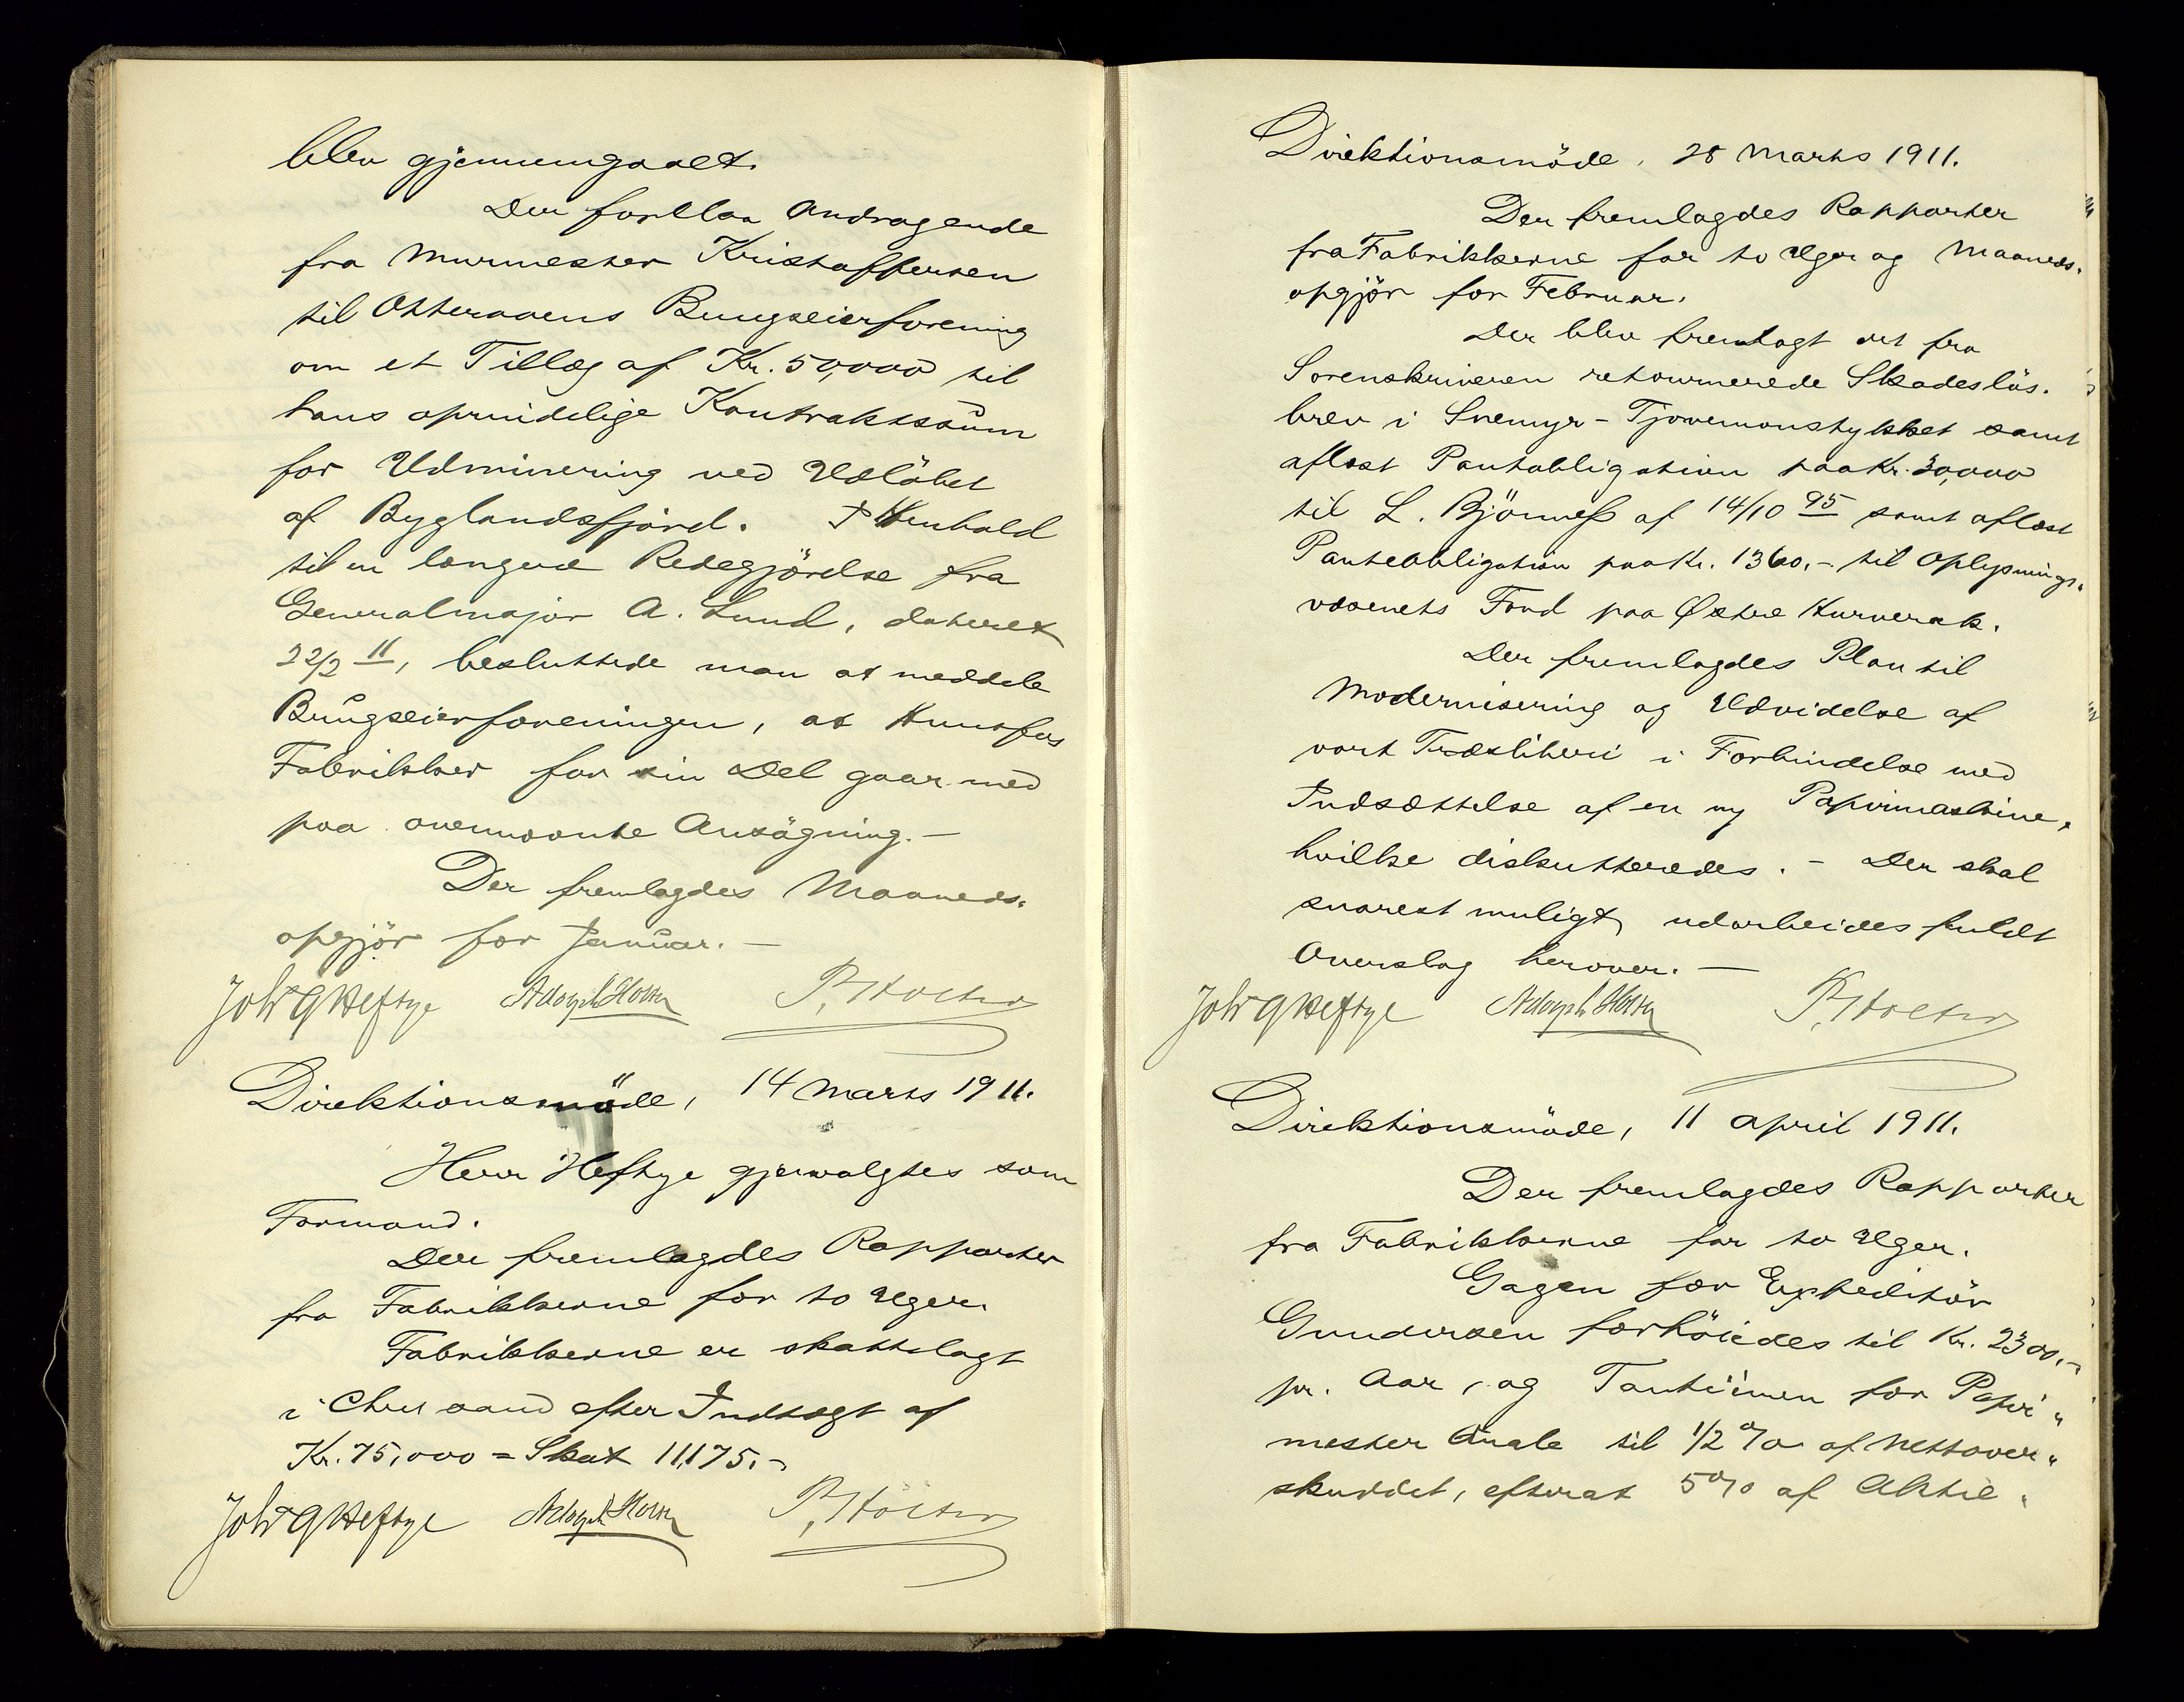 blev gjennemgaaet.
Der forelaa Andragende
fra Murmester Kristoffersen
til Otteraaens Brugseierforening
om et Tillæg af Kr. 50,000 til
hans oprindelige Kontraktssum
for Udminering ved Udløbet
af Byglandsfjord. I Henhold
til en længere Redegjörelse fra
Generalmajor A. Lund, dateret
22/2 11, besluttede man at meddele
Brugseierforeningen, at Hunsfos
Fabrikker for sin Del gaar med
paa ovennævnte Ansögning. –
Der fremlagdes Maaneds-
opgjör for Januar. –
Joh G Heftye Adolph Holst P. Holter
Direktionsmöde, 14 Marts 1911.
Herr Heftye gjenvalgtes som
Formand.
Der fremlagdes Rapporter
fra Fabrikkerne for to Uger.
Fabrikkerne er skattelagt
i Chrs sand efter Indtægt af
Kr. 75,000 = Skat 11,175.–
Joh G Heftye Adolph Holst P. Holter
Direktionsmöde, 28 Marts 1911.
Der fremlagdes Rapporter
fra Fabrikkerne for to Uger og Maaneds-
opgjör for Februar.
Der blev fremlagt det fra
Sorenskriveren retournerede Skadeslös-
brev i Snemyr - Tjovemonstykket samt
aflæst Pantobligation paa Kr. 30,000
til L. Björness af 14/10 95 samt aflæst
Panteobligation paa Kr. 1360.– til Oplysnings-
væsenets Fond paa Østre Kurverak.
Der fremlagdes Plan til
Modernisering og Udvidelse af
vort Træsliberi i Forbindelse med
Indsættelse af en ny Papirmaskine,
hvilke diskutteredes. – Der skal
snarest muligt udarbeides fuldt
Overslag herover. –
Joh G Heftye Adolph Holst P. Holter
Direktionsmöde, 11 April 1911.
Der fremlagdes Rapporter
fra Fabrikkerne for to Uger.
Gagen for Expeditör
Gundersen forhöiedes til Kr. 2300.–
pr. Aar, og Tantièmen for Papir-
mester Quale til 1/2 % af Nettover-
skuddet, efterat 5% af Aktie-